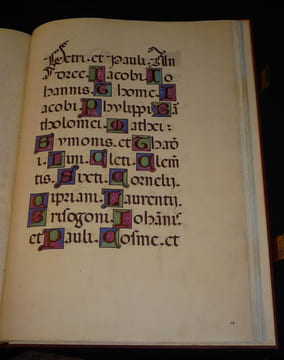 Petri. et Pauli. An
dree. Iacobi. Io
hannis. Thome. I
acobi. Phylippi. Ba
tholomei. Mathei:
Symonis. et Thate
i. Lini. Cleti. Clem̄
tis. Sixti. Cornelij.
Cipriani. Laurentij.
Grisogoni. Iohānis.
et Pauli. Cosme. et